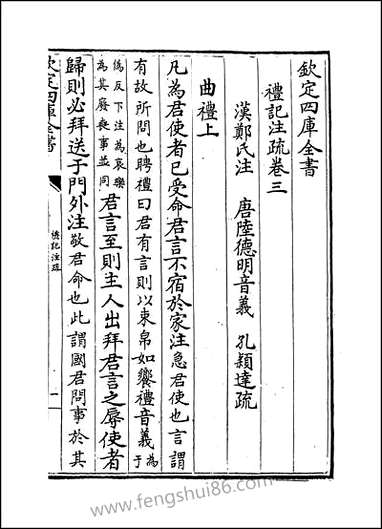 欽定四庫全書
禮記注疏卷三
漢鄭氏注 唐陸德明音義 孔穎達疏
曲禮上
凡為君使者已受命君言不宿於家注急君使也言謂
有故所問也聘禮曰君有言則以束帛如饗禮音義為于
偽反下注為哀樂為其廢喪事並同君言至則主人出拜君言之辱使者
歸則必拜送于門外注敬君命也此謂國君問事於其
欽定四庫全書
禮記注疏
一
www.fengshui86.com